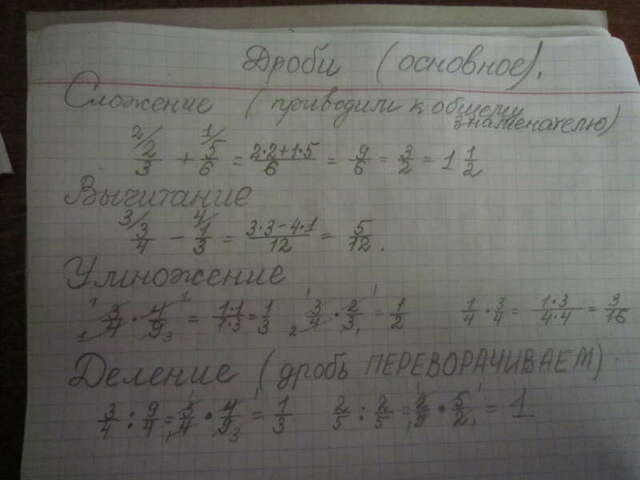 Дроби (основное).
Сложение (приводим к общему знаменателю)
2/ 2/3 + 1/ 5/6 = 2·2+1·5/6 = 9/6 = 3/2 = 1 1/2
Вычитание
3/ 3/4 − 4/ 1/3 = 3·3−4·1/12 = 5/12.
Умножение
3/4 · 4/9 = 1·1/1·3 = 1/3 3/4 · 2/3 = 1/2 1/4 · 3/4 = 1·3/4·4 = 3/16
Деление (дробь ПЕРЕВОРАЧИВАЕМ)
3/4 : 9/4 = 3/4 · 4/9 = 1/3 2/5 : 2/5 = 2/5 · 5/2 = 1